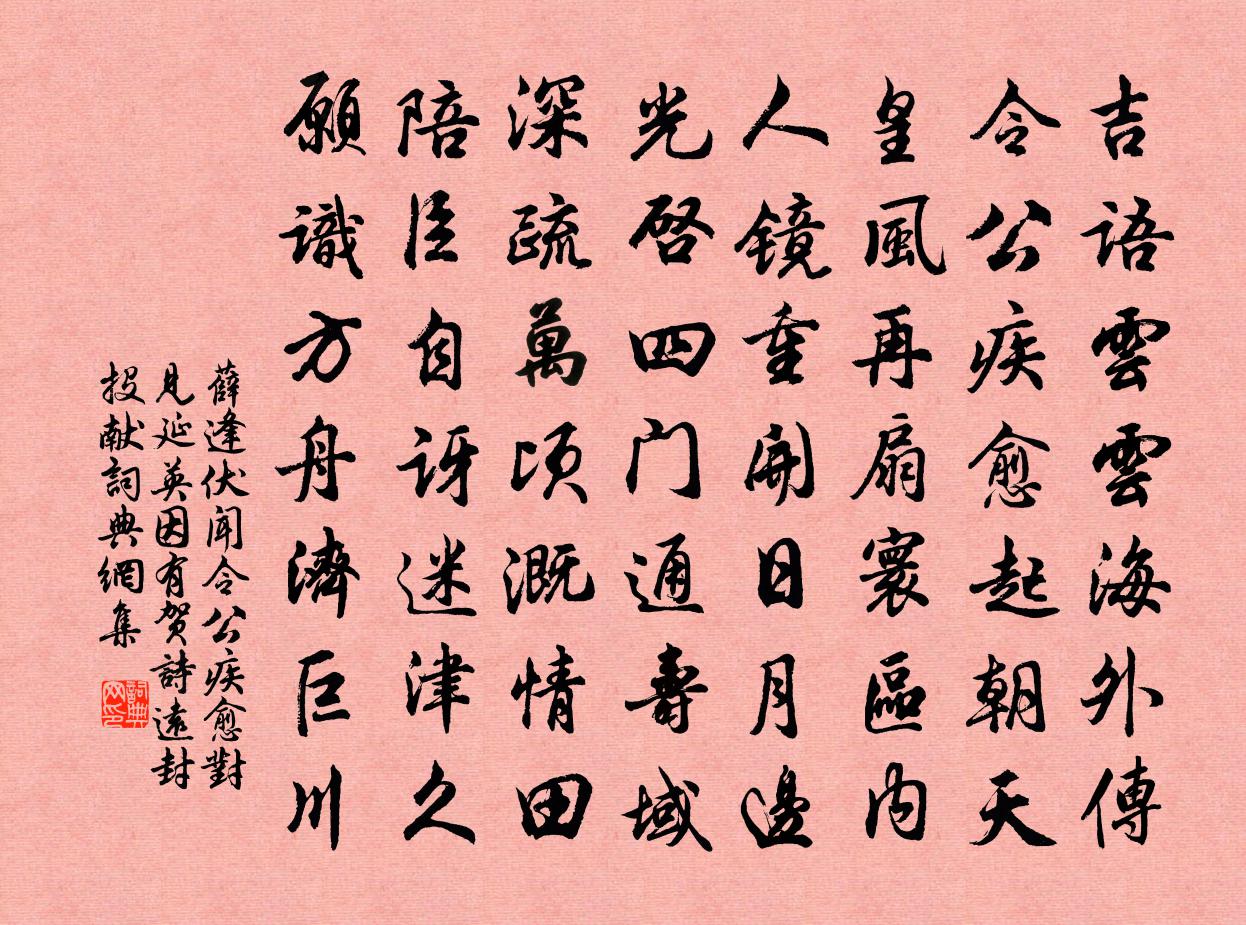 吉語雲雲海外傳
令公疾愈起朝天
皇風再扇寰區內
人鏡重開日月邊
光啓四门通壽域
深疏萬頃溉情田
陪臣自讶迷津久
願識方舟濟巨川
薛逢伏闻令公疾愈對
見延英因有贺詩遠封
投献詞典網集
詞典网印